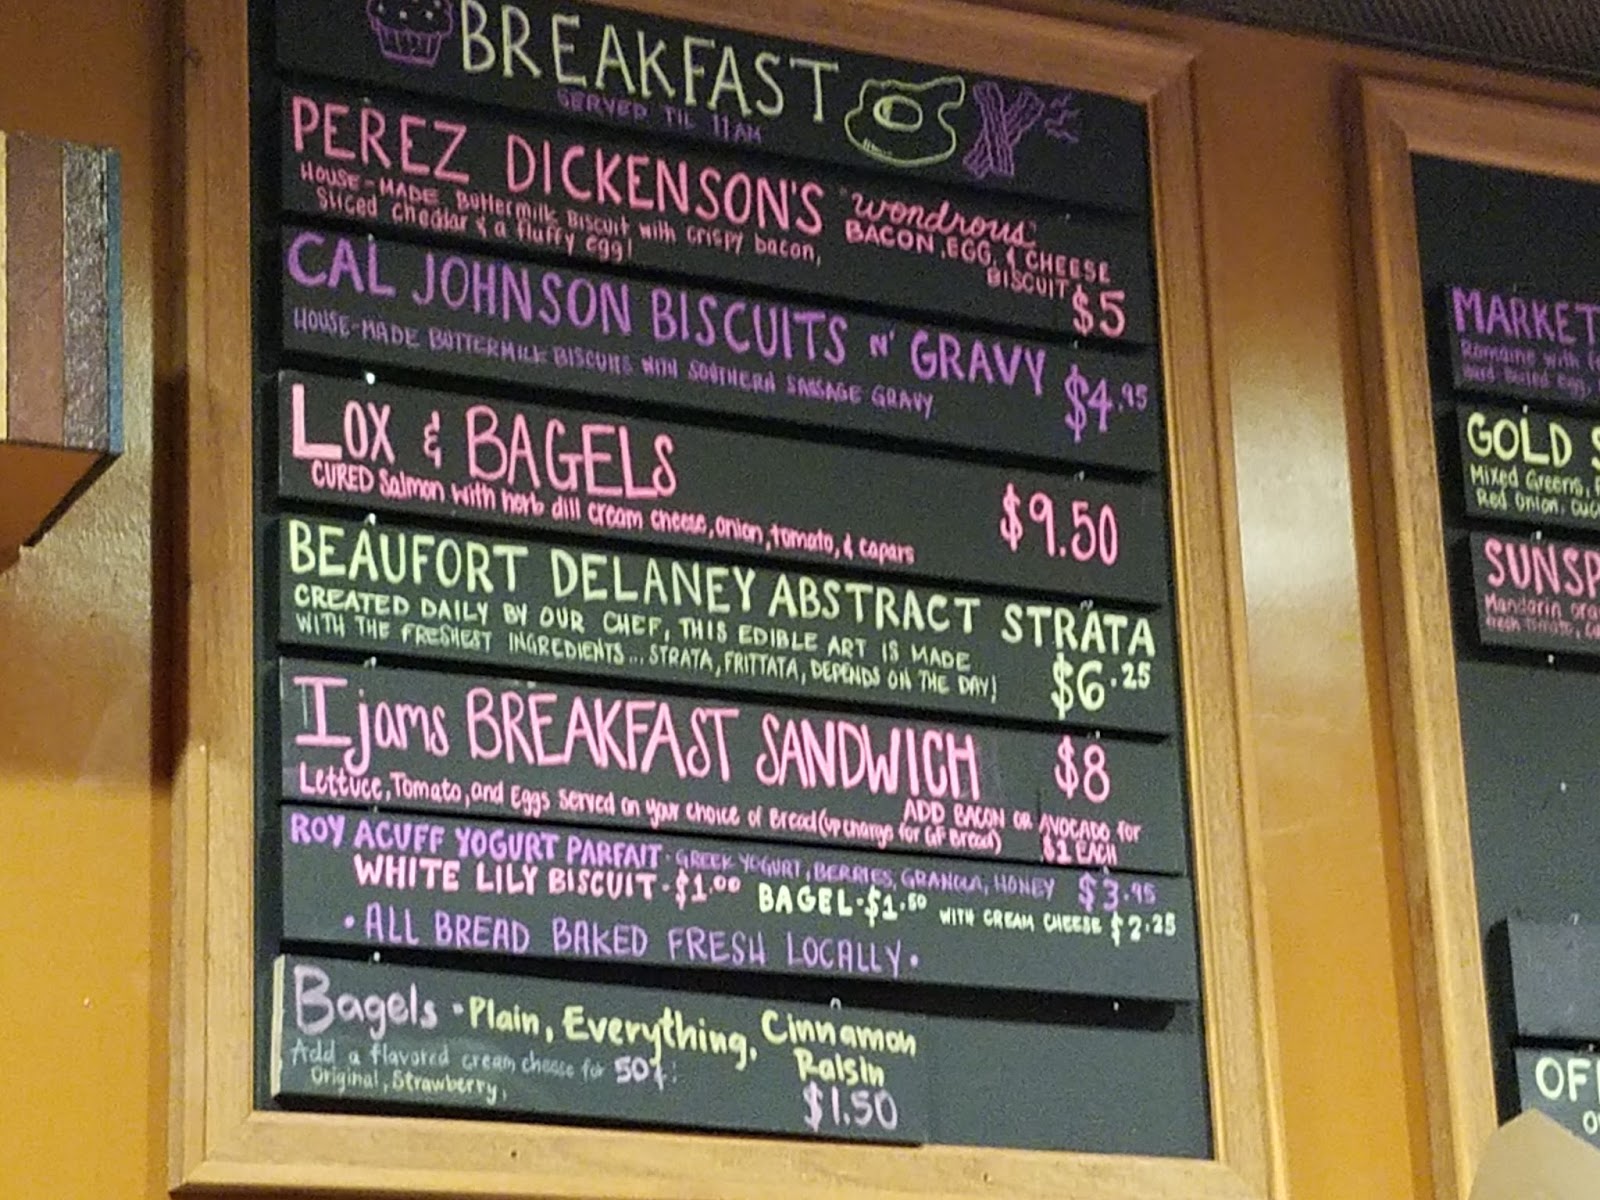 BREAKFAST
SERVED TIL 11AM
PEREZ DICKENSON'S "wondrous"
BACON, EGG, & CHEESE
BISCUIT $5
HOUSE-MADE Buttermilk Biscuit with crispy bacon,
Sliced Cheddar & a fluffy egg!
CAL JOHNSON BISCUITS N' GRAVY $4.95
HOUSE-MADE BUTTERMILK BISCUITS WITH SOUTHERN SAUSAGE GRAVY
LOX & BAGELS $9.50
CURED Salmon with herb dill cream cheese, onion, tomato, & capers
BEAUFORT DELANEY ABSTRACT STRATA
CREATED DAILY BY OUR CHEF, THIS EDIBLE ART IS MADE
WITH THE FRESHEST INGREDIENTS... STRATA, FRITTATA, DEPENDS ON THE DAY! $6.25
Ijams BREAKFAST SANDWICH $8
Lettuce, Tomato, and Eggs Served on your choice of Bread (upcharge for GF Bread)
ADD BACON OR AVOCADO for
$1 EACH
ROY ACUFF YOGURT PARFAIT - GREEK YOGURT, BERRIES, GRANOLA, HONEY $3.95
WHITE LILY BISCUIT - $1.00 BAGEL - $1.50 WITH CREAM CHEESE $2.25
• ALL BREAD BAKED FRESH LOCALLY •
Bagels - Plain, Everything, Cinnamon
Raisin
$1.50
Add a flavored cream cheese for 50¢:
Original, Strawberry,
MARKET
Romaine with
Hard Boiled Egg,
GOLD S
Mixed Greens,
Red Onion, cuc
SUNSP
Mandarin ora
fresh tomato,
OF